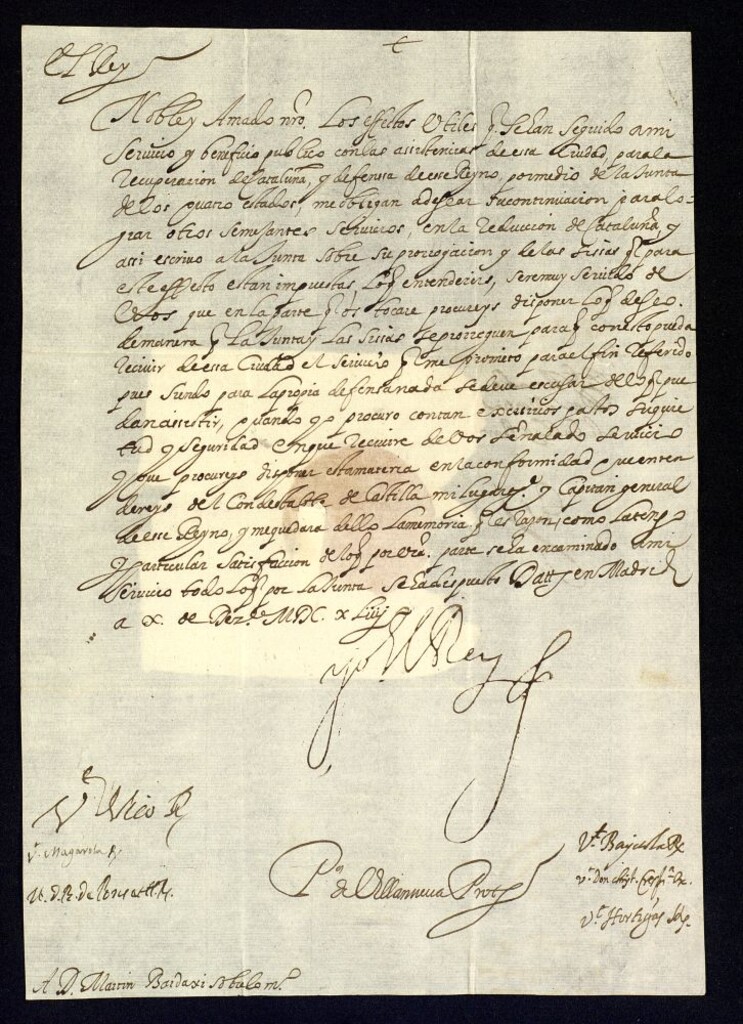 +
El Rey
Noble y Amado nro. Los effettos Utiles q̃ Se an Seguido a mi
Servicio y beneficio publico con las assistencias de essa Ciudad, para la
recuperacion de Cataluña, y defensa de esse Reyno, por medio de la Junta
de los quatro estados, me obligan a desear su continuacion para lo-
grar otros Semejantes Servicios, en la reduccion de Cataluña, y
assi escrivo a la Junta sobre su prorrogacion y de las sisas q̃ para
este effetto estan impuestas, Lo q̃ entendereis, sere muy Servido de
Vos que en la parte q̃ os tocare procureys disponer Lo q̃ deseo.
de manera q̃ La Junta y Las Sisas se prorroguen para q̃ con esto pueda
recivir de essa Ciudad el Servicio q̃ me prometo para el fin referido
pues siendo para la propia defensa nada se deve escusar de lo q̃ pue
dan assistir, quando yo procuro con tan excessivos gastos su quie
tud y Seguridad en que recivire de Vos señalado Servicio
y que procureys disponer esta materia en la conformidad que enten
dereys del Condestable de Castilla mi Lugarte. y Capitan general
de esse Reyno, y me quedara dello La memoria q̃ es razon, como La tengo
particular Satisfaccion de lo q̃ por vra. parte se ha encaminado a mi
Servicio todo Lo q̃ por La Junta se ha dispuesto Datt. en Madrid
a X. de Dezre. MDC. x Liiij
yo el Rey
Vt. Vico R.
Vt. Magarola R.
Vt. Bayetola R.
Pus. de Villanueva Prot.
Vt. Don Christ. Crespi R.
Vt. Hortigas
A D. Martin Bardaxi